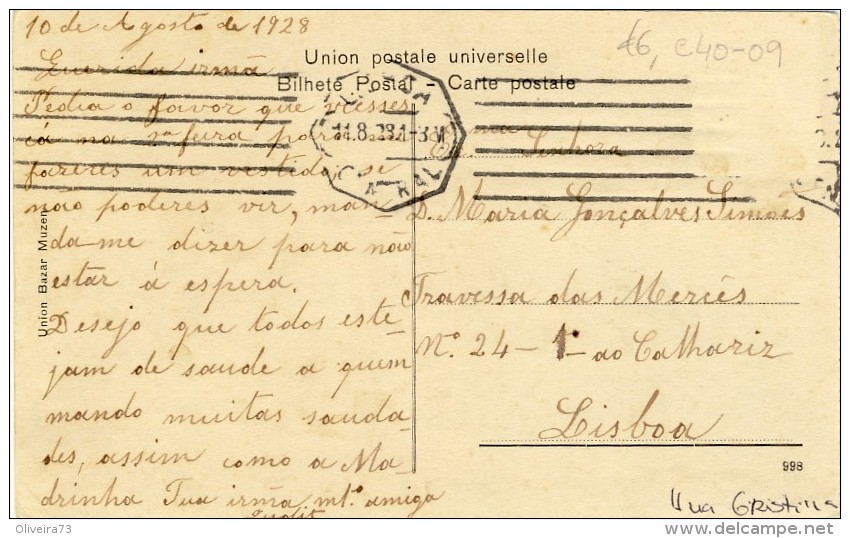 10 de Agosto de 1928
Querida irmã
Pedia o favor que viesses
cá na 2ª feira para me
fazeres um vestido, se
não poderes vir, man-
da-me dizer para não
estar á espera.
Desejo que todos este-
jam de saude a quem
mando muitas sauda-
des, assim como a Ma-
drinha Tua irmã mtº amiga
Judit
Union postale universelle
Bilhete Postal - Carte postale
11.8.28.1-3M
CENTRAL
€6, C40-09
Senhora
D. Maria Gonçalves Simões
Travessa das Mercês
Nº 24 - 1º ao Calhariz
Lisboa
998
Union Bazar Muzen
Oliveira73